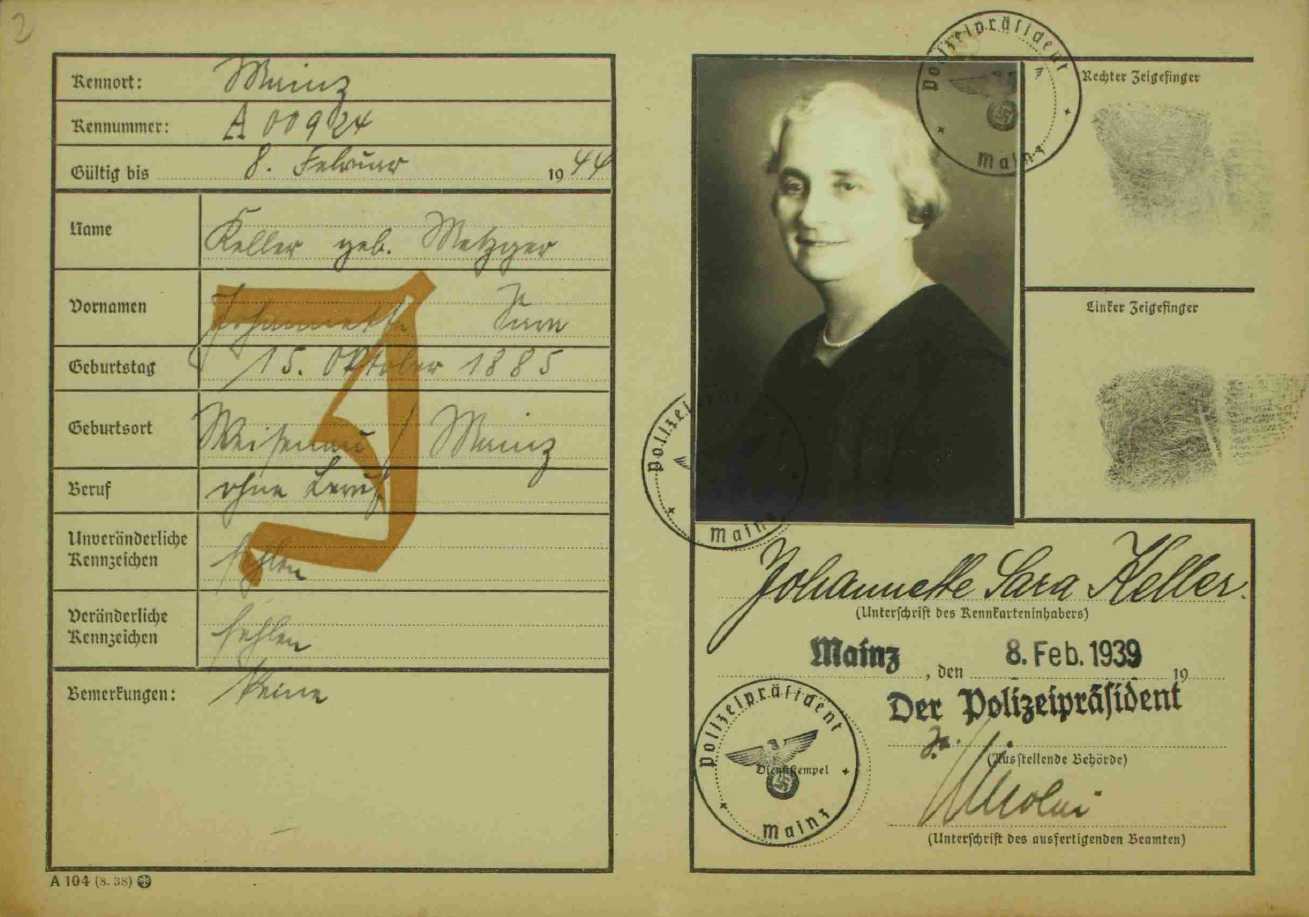 2
Kennort: Mainz
Kennummer: A 00924
Gültig bis 8. Februar 1944
Name Keller geb. Metzger
Vornamen Johannette Sara
Geburtstag 15. Oktober 1885
Geburtsort Weisenau / Mainz
Beruf ohne Beruf
Unveränderliche Kennzeichen fehlen
Veränderliche Kennzeichen fehlen
Bemerkungen: Keine
J
A 104 (8. 38)
Polizeipräsident
Mainz
Rechter Zeigefinger
Linker Zeigefinger
Polizeipräsident
Mainz
Johannette Sara Keller.
(Unterschrift des Kennkarteninhabers)
Mainz, den 8. Feb. 1939 19
Der Polizeipräsident
(Ausstellende Behörde)
Polizeipräsident
Dienststempel
Mainz
(Unterschrift des ausfertigenden Beamten)